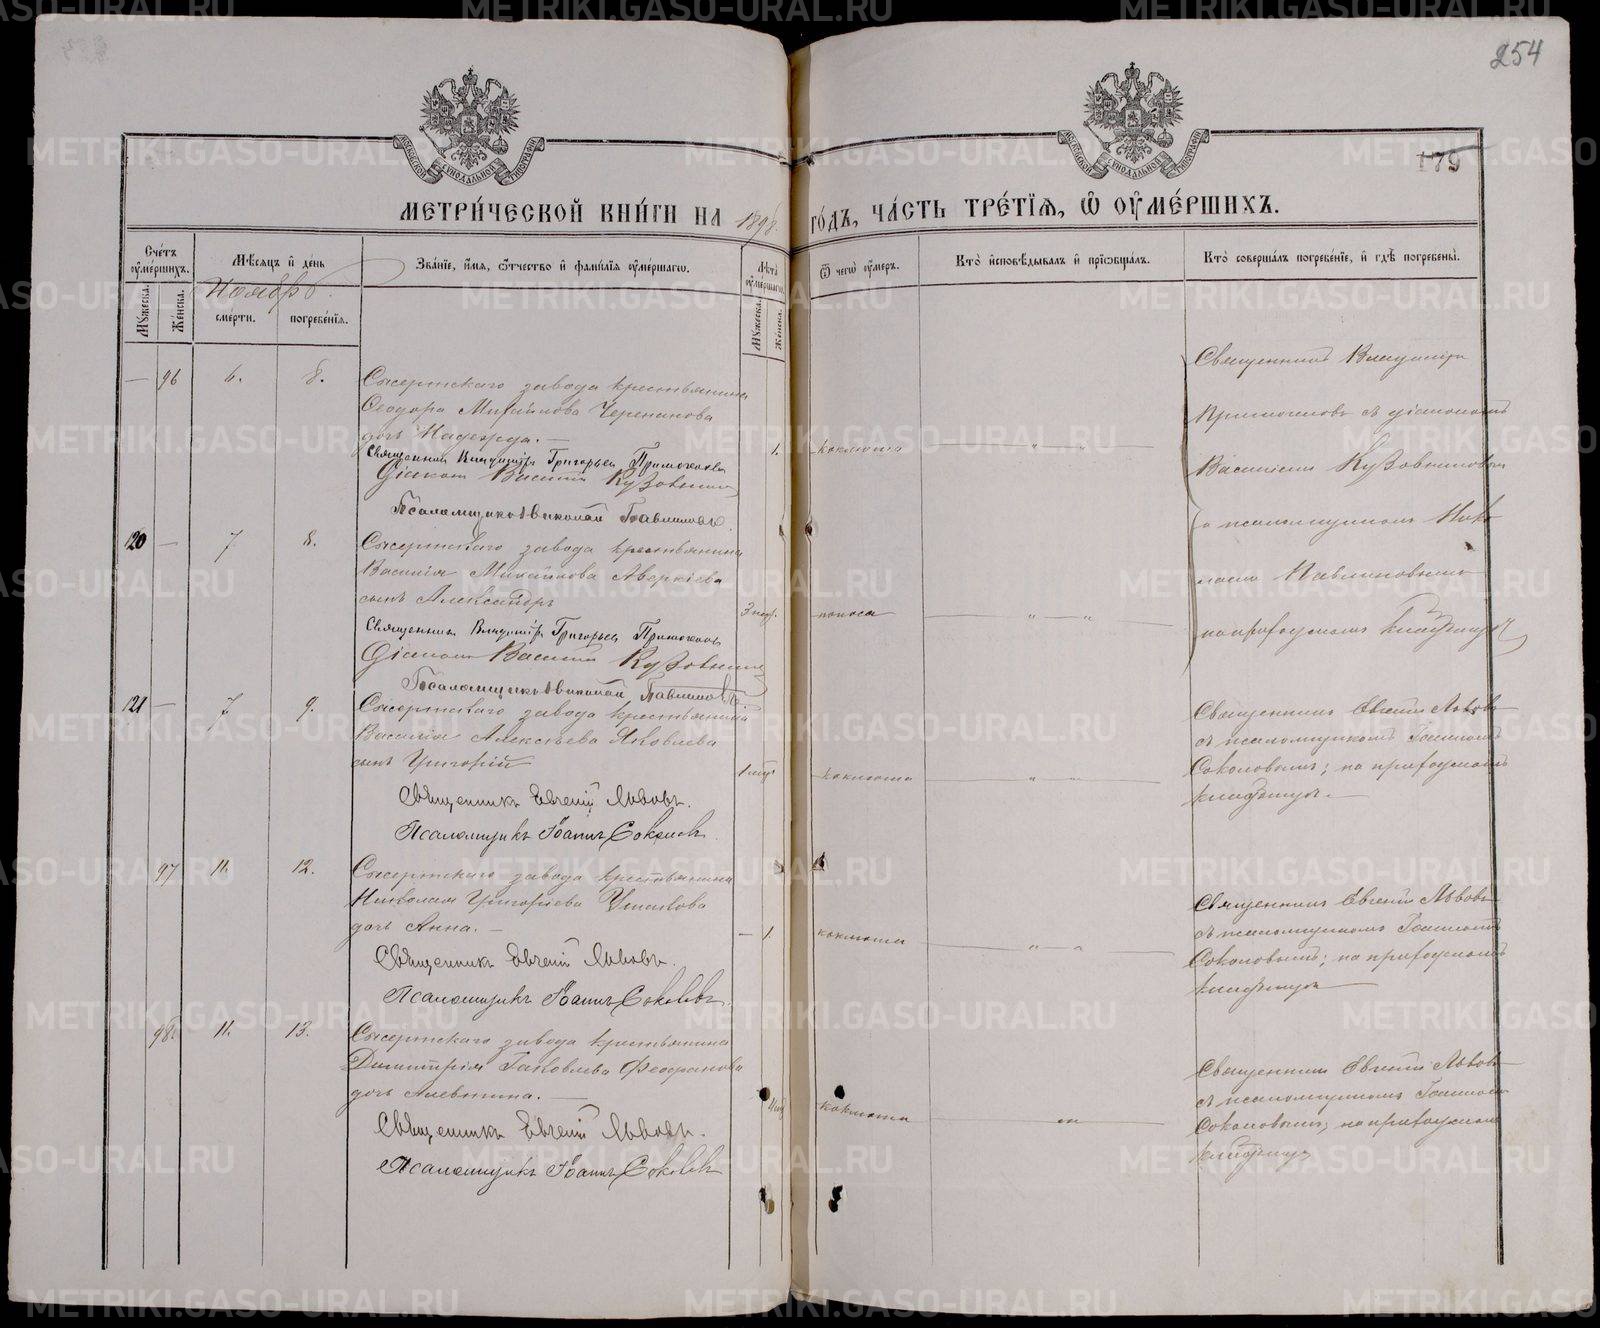 254
179
МОСКОВСКОЙ СѴНОДАЛЬНОЙ ТИПОГРАФІИ
МОСКОВСКОЙ СѴНОДАЛЬНОЙ ТИПОГРАФІИ
МЕТРИ́ЧЕСКОЙ КНИ́ГИ НА 1898 ГО́ДЪ, ЧА́СТЬ ТРЕ́ТІѦ, Ѡ ОУМЕ́РШИХЪ.
Сче́тъ оумершихъ.
Мꙋжеска.
Же́нска.
Мѣ́сяцъ и҆ де́нь
Ноябрь.
сме́рти.
погребе́нїѧ.
Зва́нїе, и҆́мѧ, ѻ҆́тчество и҆ фами́лїѧ оумершагѡ.
Лѣ́та оумершагѡ.
Мꙋжеска.
Же́нска.
Ѿ чегѡ̀ оу҆́меръ.
Кто̀ и҆сповѣ́дывалъ и҆ прїѡбща́лъ.
Кто̀ соверша́лъ погребе́нїе, и҆ гдѣ̀ погребены̀.
— 96 6. 8.
Сысертскаго завода крестьянина
Ѳеодора Михайлова Черепанова
дочь Надежда. —
1. коклюша — „ — „ —
Священникъ Владиміръ Григорьев Примочков
Діаконъ Василій Кузовников
Псаломщикъ Николай Павлиновъ.
Священникъ Владиміръ
Примочковъ съ діакономъ
Василіемъ Кузовниковым
и псаломщикомъ Нико
лаемъ Павлиновымъ
на приходскомъ кладбищѣ
120 — 7. 8.
Сысертскаго завода крестьянина
Василія Михайлова Аверкіева
сынъ Александръ
3 нед. поноса — „ — „ —
Священникъ Владиміръ Григорьев Примочков
Діаконъ Василій Кузовников
Псаломщикъ Николай Павлиновъ.
121 — 7. 9.
Сысертскаго завода крестьянина
Василія Алексѣева Яковлева
сынъ Григорій
коклюша — „ — „ —
Священникъ Евгеній Львовъ.
Псаломщикъ Іоаннъ Соколовъ.
Священникъ Евгеній Львовъ
съ псаломщикомъ Іоанномъ
Соколовымъ; на приходскомъ
кладбищѣ. —
97 11. 12.
Сысертскаго завода крестьянина
Николая Григоріева Ушакова
дочь Анна. —
— 1. коклюша — „ — „ —
Священникъ Евгеній Львовъ.
Псаломщикъ Іоаннъ Соколовъ.
Священникъ Евгеній Львовъ
съ псаломщикомъ Іоанномъ
Соколовымъ; на приходскомъ
кладбищѣ
98. 11. 13.
Сысертскаго завода крестьянина
Димитрія Яковлева Ѳеофанова
дочь Алевтина. —
коклюша — „ —
Священникъ Евгеній Львовъ.
Псаломщикъ Іоаннъ Соколовъ
Священникъ Евгеній Львовъ
съ псаломщикомъ Іоанномъ
Соколовымъ; на приходскомъ
кладбищѣ
METRIKI.GASO-URAL.RU